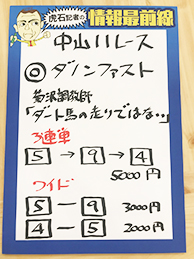 虎石記者の情報最前線
中山11レース
◎ダノンファスト
菊沢調教師
「ダート馬の走りではな‥」
3連単
5→9→4
5000円
ワイド
5－9 3000円
4－5 2000円